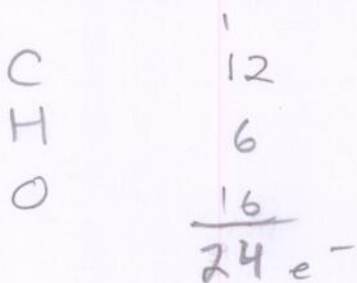 1
C 12
H 6
O 16
24 e⁻